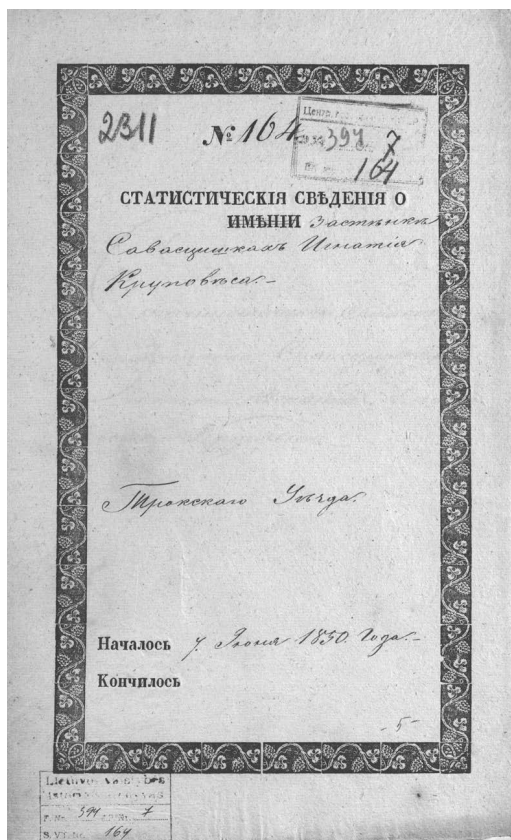 2311
№ 164.
Центр.
394 7
164
СТАТИСТИЧЕСКІЯ СВѢДЕНІЯ О
ИМѢНІИ застѣнкѣ
Савасцишкахъ Игнатія
Круповѣса.-
Трокскаго Уѣзда.
Началось 7. Іюня 1850. Года.-
Кончилось
- 5 -
F. Nr. 394 7
B. V. Nr. 164